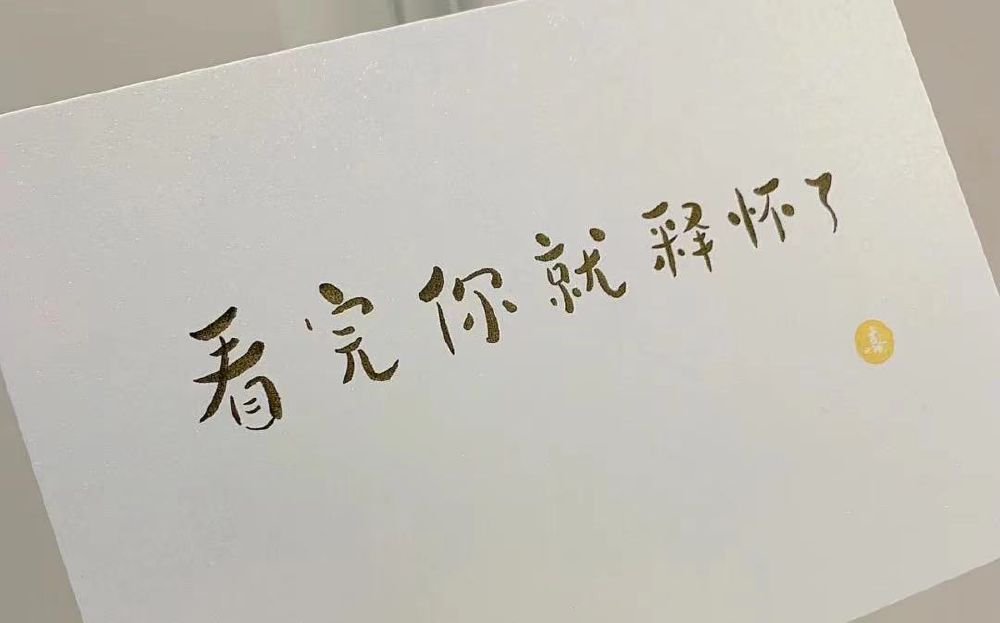 看完你就释怀了
嘉